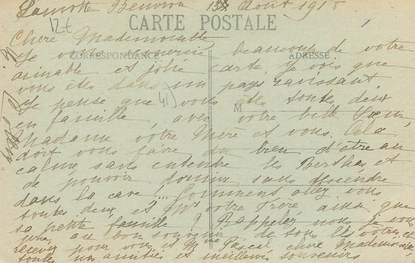 Lamotte Beuvron 13 Août 1918
12 f
CARTE POSTALE
Chère Mademoiselle
CORRESPONDANCE
ADRESSE
Je vous remercie beaucoup de votre
aimable et jolie carte je vois que
vous êtes dans un pays ravissant
Je pense que vous êtes toutes deux
en famille, avec votre belle Sœur,
Madame votre Mère et vous. Cela
doit vous faire un bien d'être au
calme sans entendre les Berthas et
de pouvoir dormir sans descendre
dans la cave. Comment allez vous
toutes deux et Mr votre frère ainsi que
sa petite famille? Rappelez nous je vous
prie au bon souvenir de tous les votres, et
recevez pour vous et Mme chère Mademoiselle
toutes nos amitiés et meilleurs souvenirs